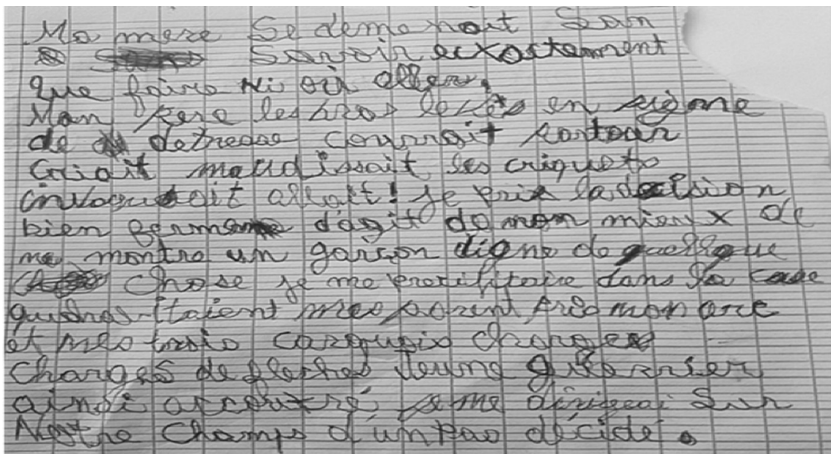 Ma mere se demenait san
savoir exactement
que faire ni où aller.
Mon pere les bras levés en signe
de detresse courrait partour
criait maudissait les criquets
invoquait allah! je pris la decision
bien ferme d'agit de mon mieux de
me montre un garçon digne de quelque
chose je me precipitoire dans la case
mes parent pris mon arc
et mes trois carquois charges
charges de fleches Jeune guerrier
ainsi accoutré, je me dirigeai sur
Nostre champs d'un pas décidé.